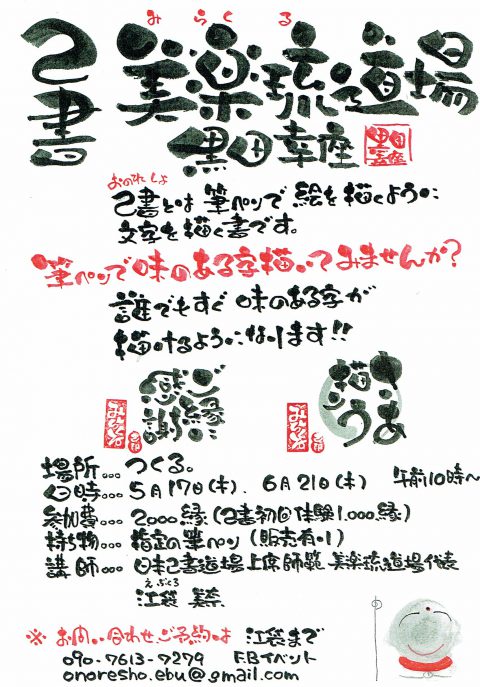 みらくる
己書 美楽琉る道場
黒田幸座
おのれしょ
己書とは 筆ペンで 絵を描くように
文字を描く書です。
筆ペンで味のある字描いてみませんか?
誰でもすぐ 味のある字が
描けるようになります!!
ご縁に
感謝
さあ
描こう
場所… つくる。
日時… 5月17日(木)、6月21日(木) 午前10時〜
参加費… 2000縁(己書初回体験1.000縁)
持ち物… 指定の筆ペン(販売有り)
講師… 日本己書道場上席師範 美楽琉道場代表
えぶくろ
江袋 美奈
※ お問い合わせ、ご予約は 江袋まで
090-7613-7279 F.Bイベント
onoresho.ebu@gmail.com